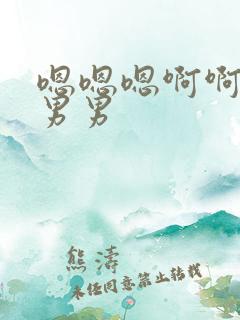 嗯嗯嗯啊啊
男男
熊涛
未经同意禁止转载